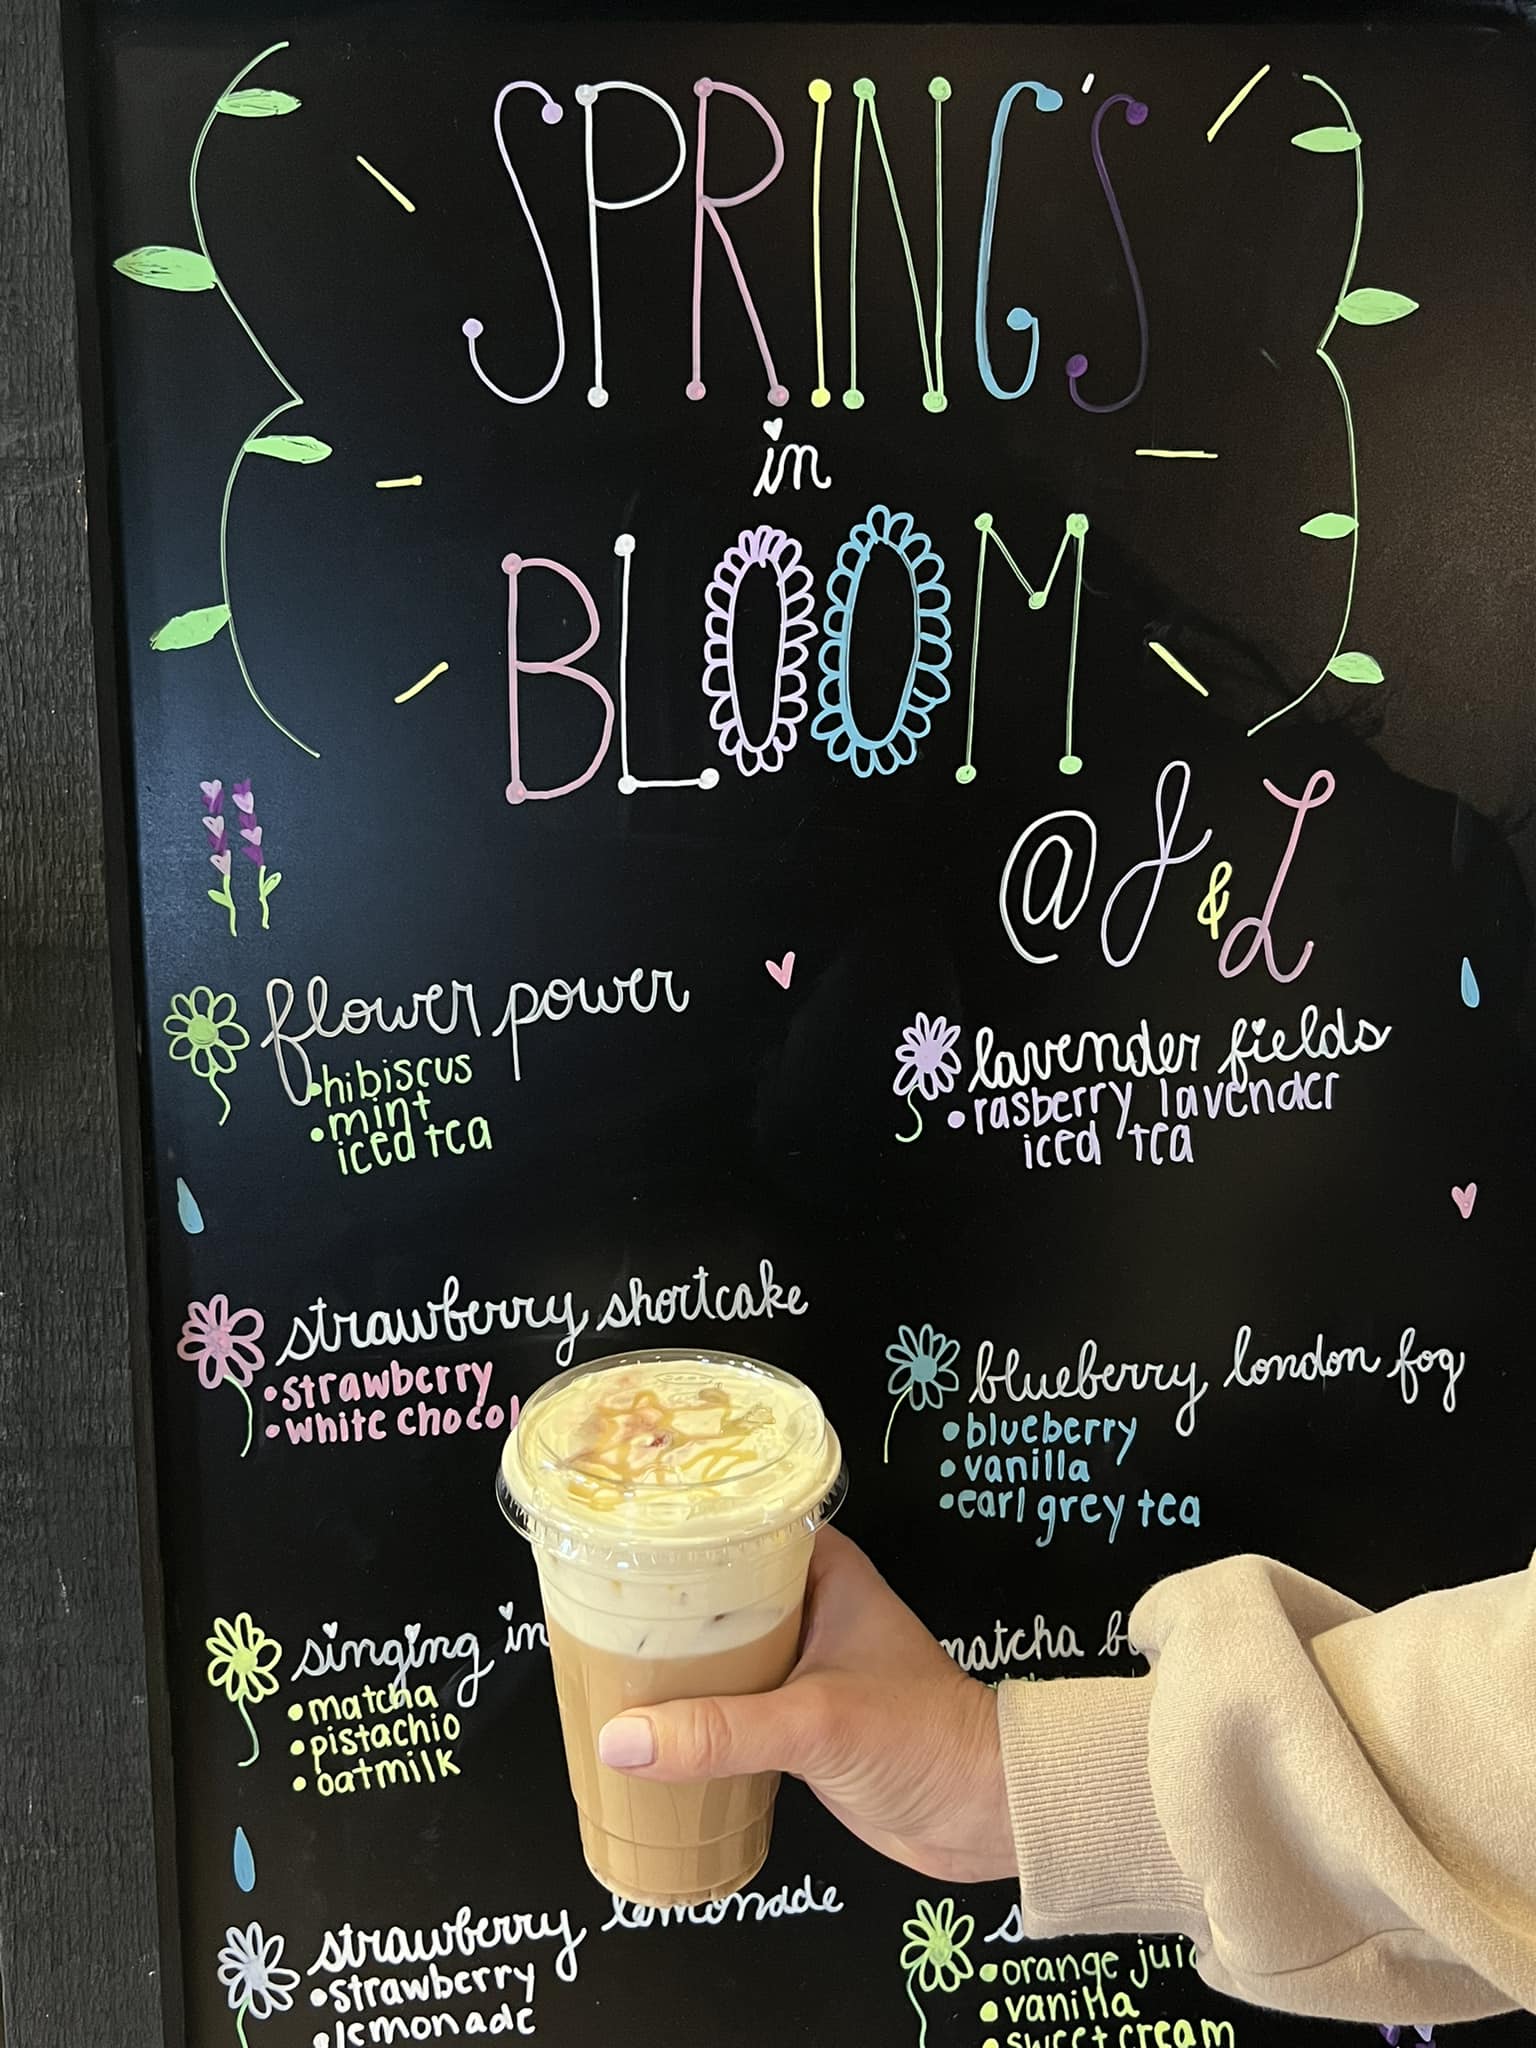 SPRING'S
in
BLOOM
@ J & L
flower power
•hibiscus
mint
•iced tea
lavender fields
•rasberry lavender
iced tea
strawberry shortcake
•strawberry
•white
blueberry london fog
•blueberry
•vanilla
•earl grey tea
singing in
•matcha
•pistachio
•oatmilk
matcha
strawberry lemonade
•strawberry
•lemonade
•orange
•vanilla
•sweet cream